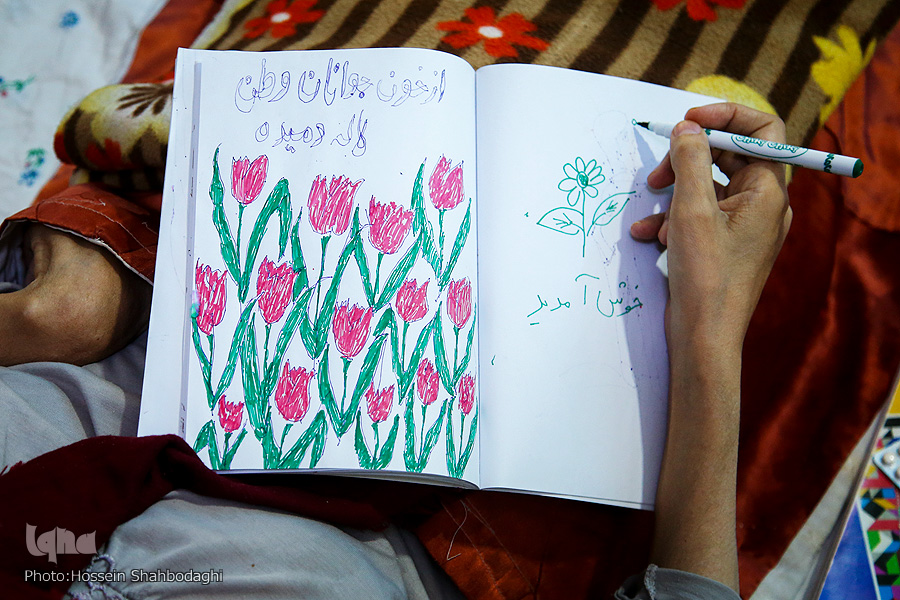 از خون جوانان وطن
لاله دمیده
خوش آمدید
iqna
Photo:Hossein Shahbodaghi